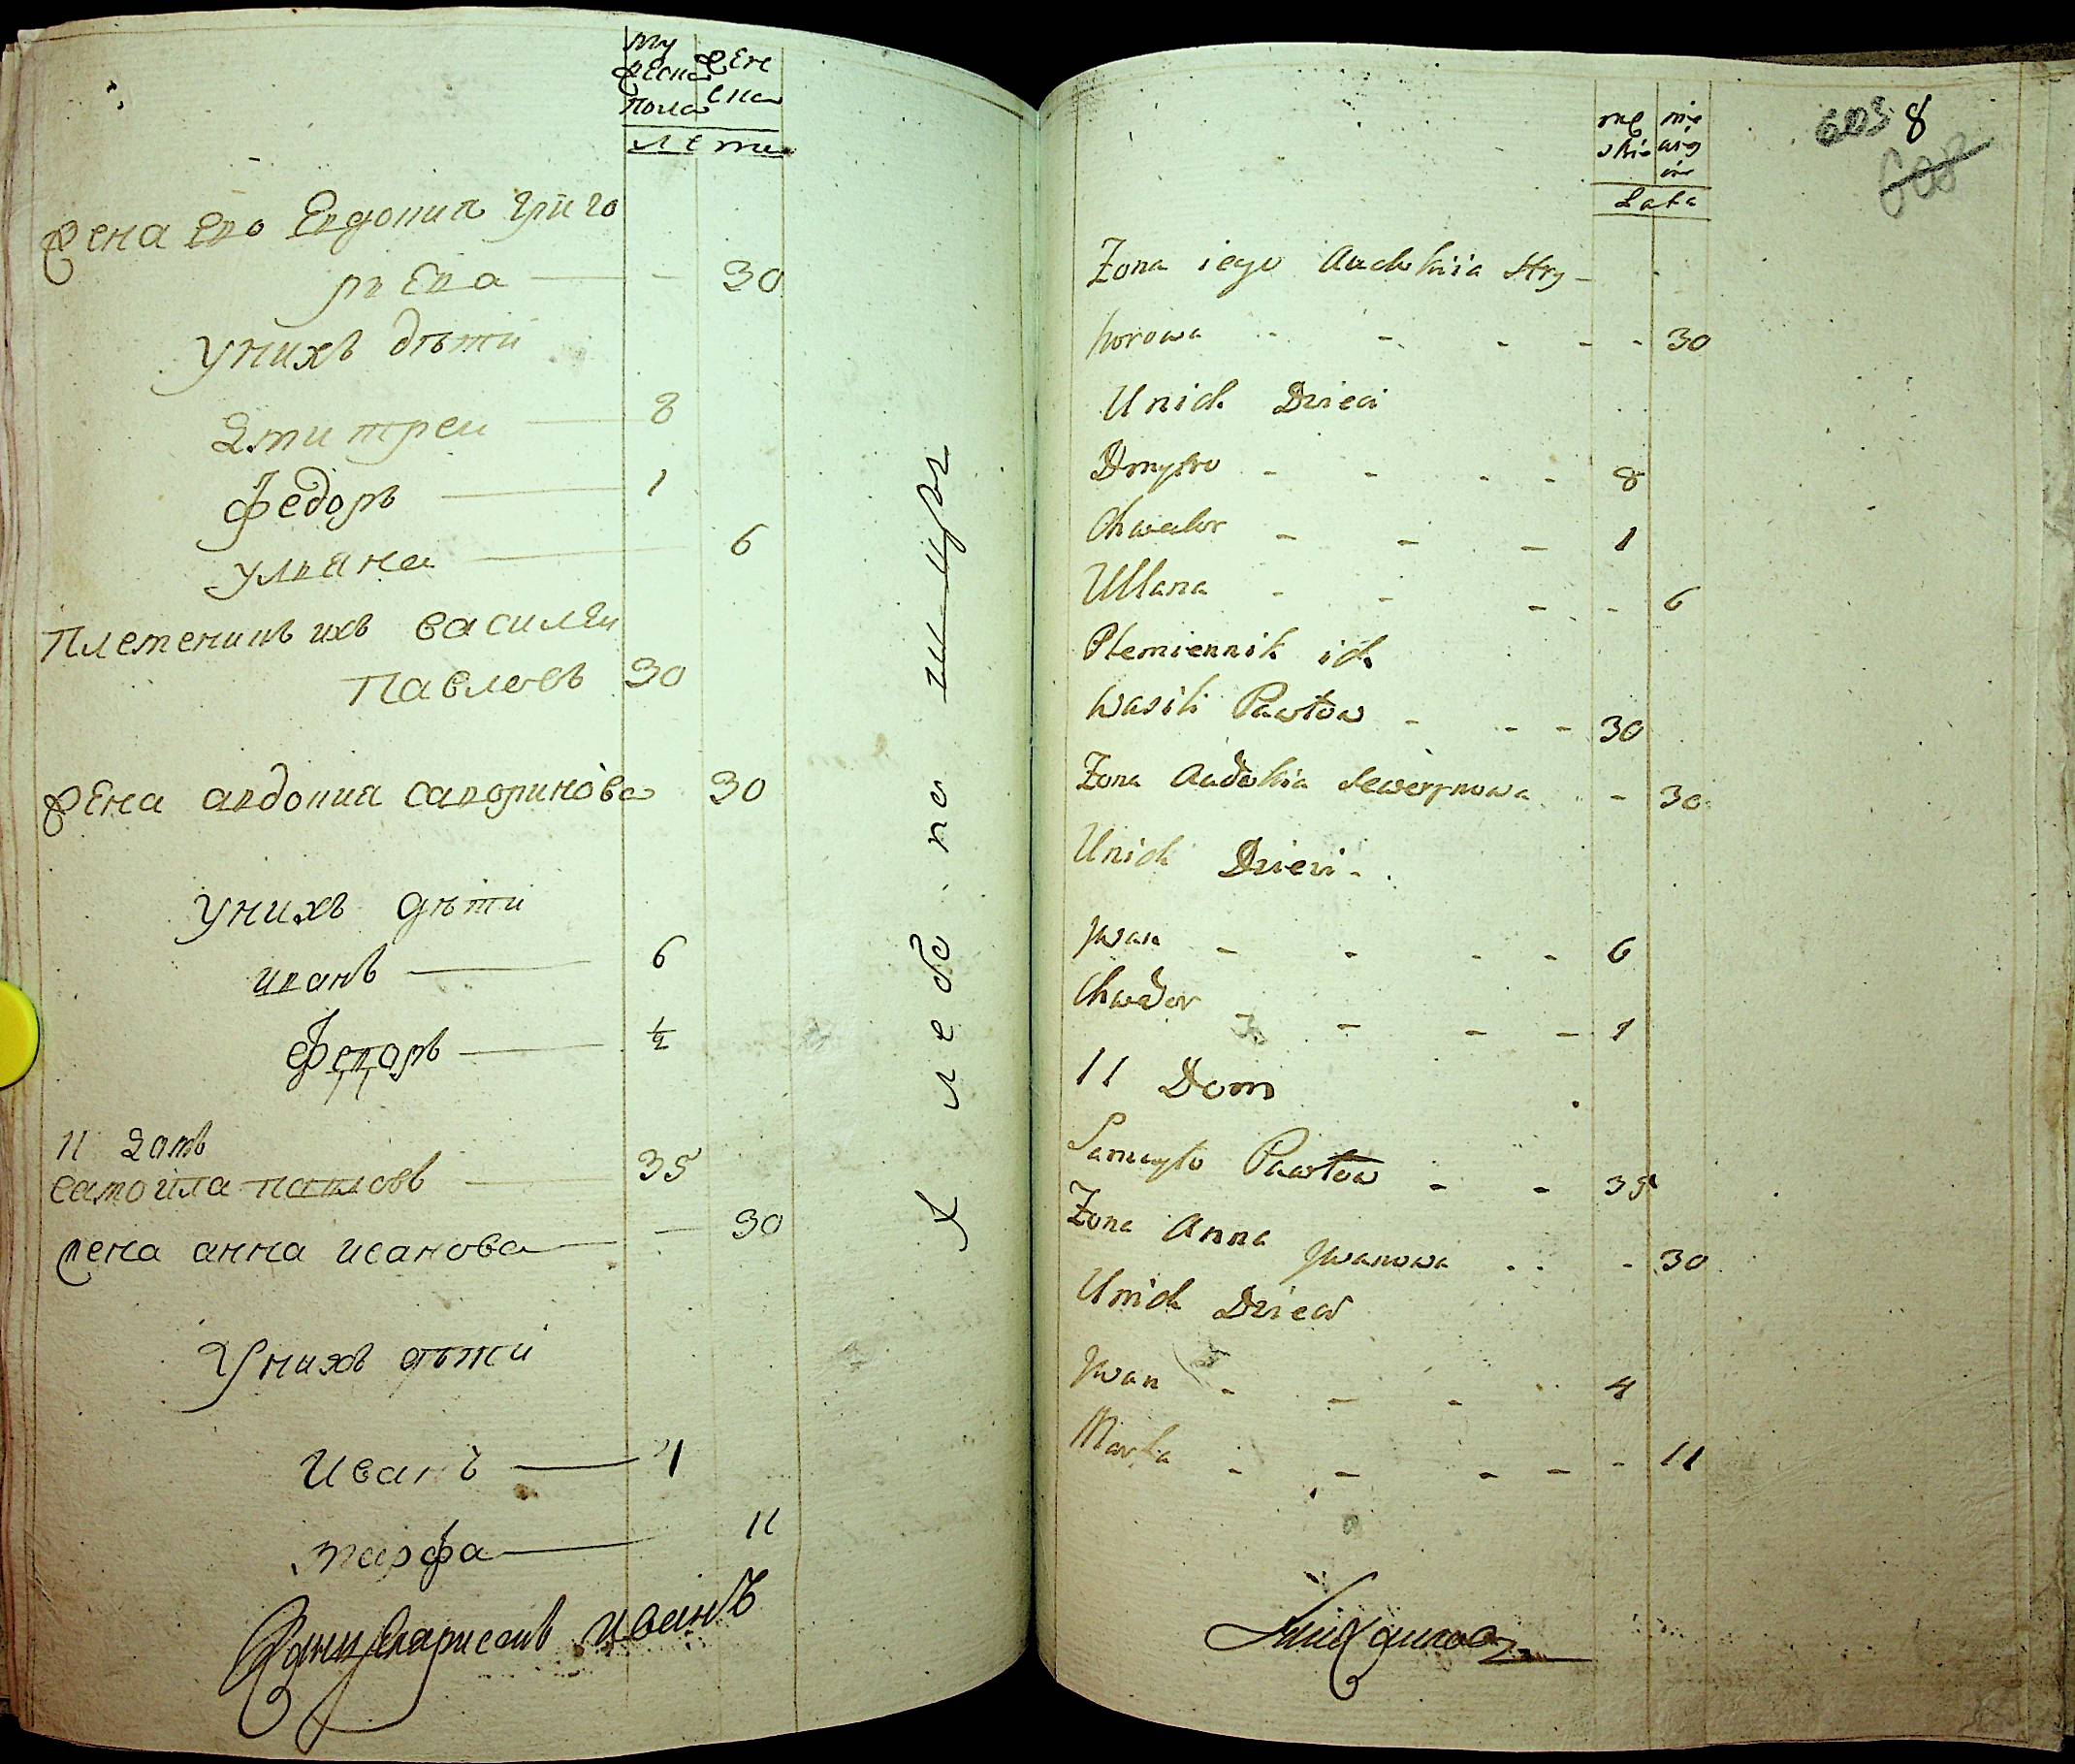 му жеска пола
жен ска
лета
жена ево Евдокия григо
рьева — — 30
у нихъ дѣти
Дмитреи — 8
Федоръ — 1
ульяна — 6
Племеникъ ихъ василеи
Павловъ 30
жена авдокия савфринова 30
у нихъ дѣти
иванъ — 6
Федоръ — ½
11 Дамъ
самоила павловъ — 35
жена анна иванова — — 30
У нихъ дѣти
Иванъ — 4
марфа — 11
иванъ
mę skie
nie wieś
Lata
8
603
608
Zona iego Audokiia Hry-
horowa - - - - - 30
Unich Dzieci
Dmytro - - - - 8
Chwedor - - - 1
Ullana - - - - 6
Plemiennik ich
Wasili Pawłow - - - 30
Zona Audokia Sewerynowa - - 30
Unich Dzieci -
Jwan - - - - 6
Chwedor - - - - 1
11 Dom
Samuyło Pawłow - - 35
Zona Anna Jwanowa - - - 30
Unich Dzieci
Jwan - - - - 4
Marfa - - - - - 11